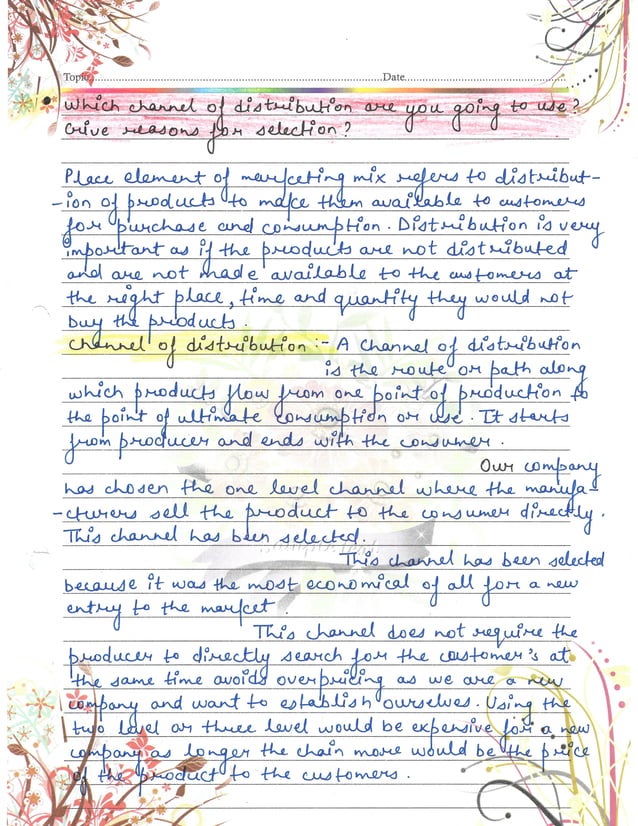 Topic............Date............
Which channel of distribution are you going to use?
Give reasons for selection?
Place element of marketing mix refers to distribut-
-ion of products to make them available to customers
for purchase and consumption. Distribution is very
important as if the products are not distributed
and are not made available to the customers at
the right place, time and quantity they would not
buy the products.
Channel of distribution :- A channel of distribution
is the route or path along
which products flow from one point of production to
the point of ultimate consumption or use. It starts
from producer and ends with the consumer.
Our company
has chosen the one level channel where the manufa-
-cturers sell the product to the consumer directly.
This channel has been selected.
This channel has been selected
because it was the most economical of all for a new
entry to the market.
This channel does not require the
producer to directly search for the customer's at
the same time avoids overpricing as we are a new
company and want to establish ourselves. Using the
two level or three level would be expensive for a new
company as longer the chain more would be the price
of the product to the customers.